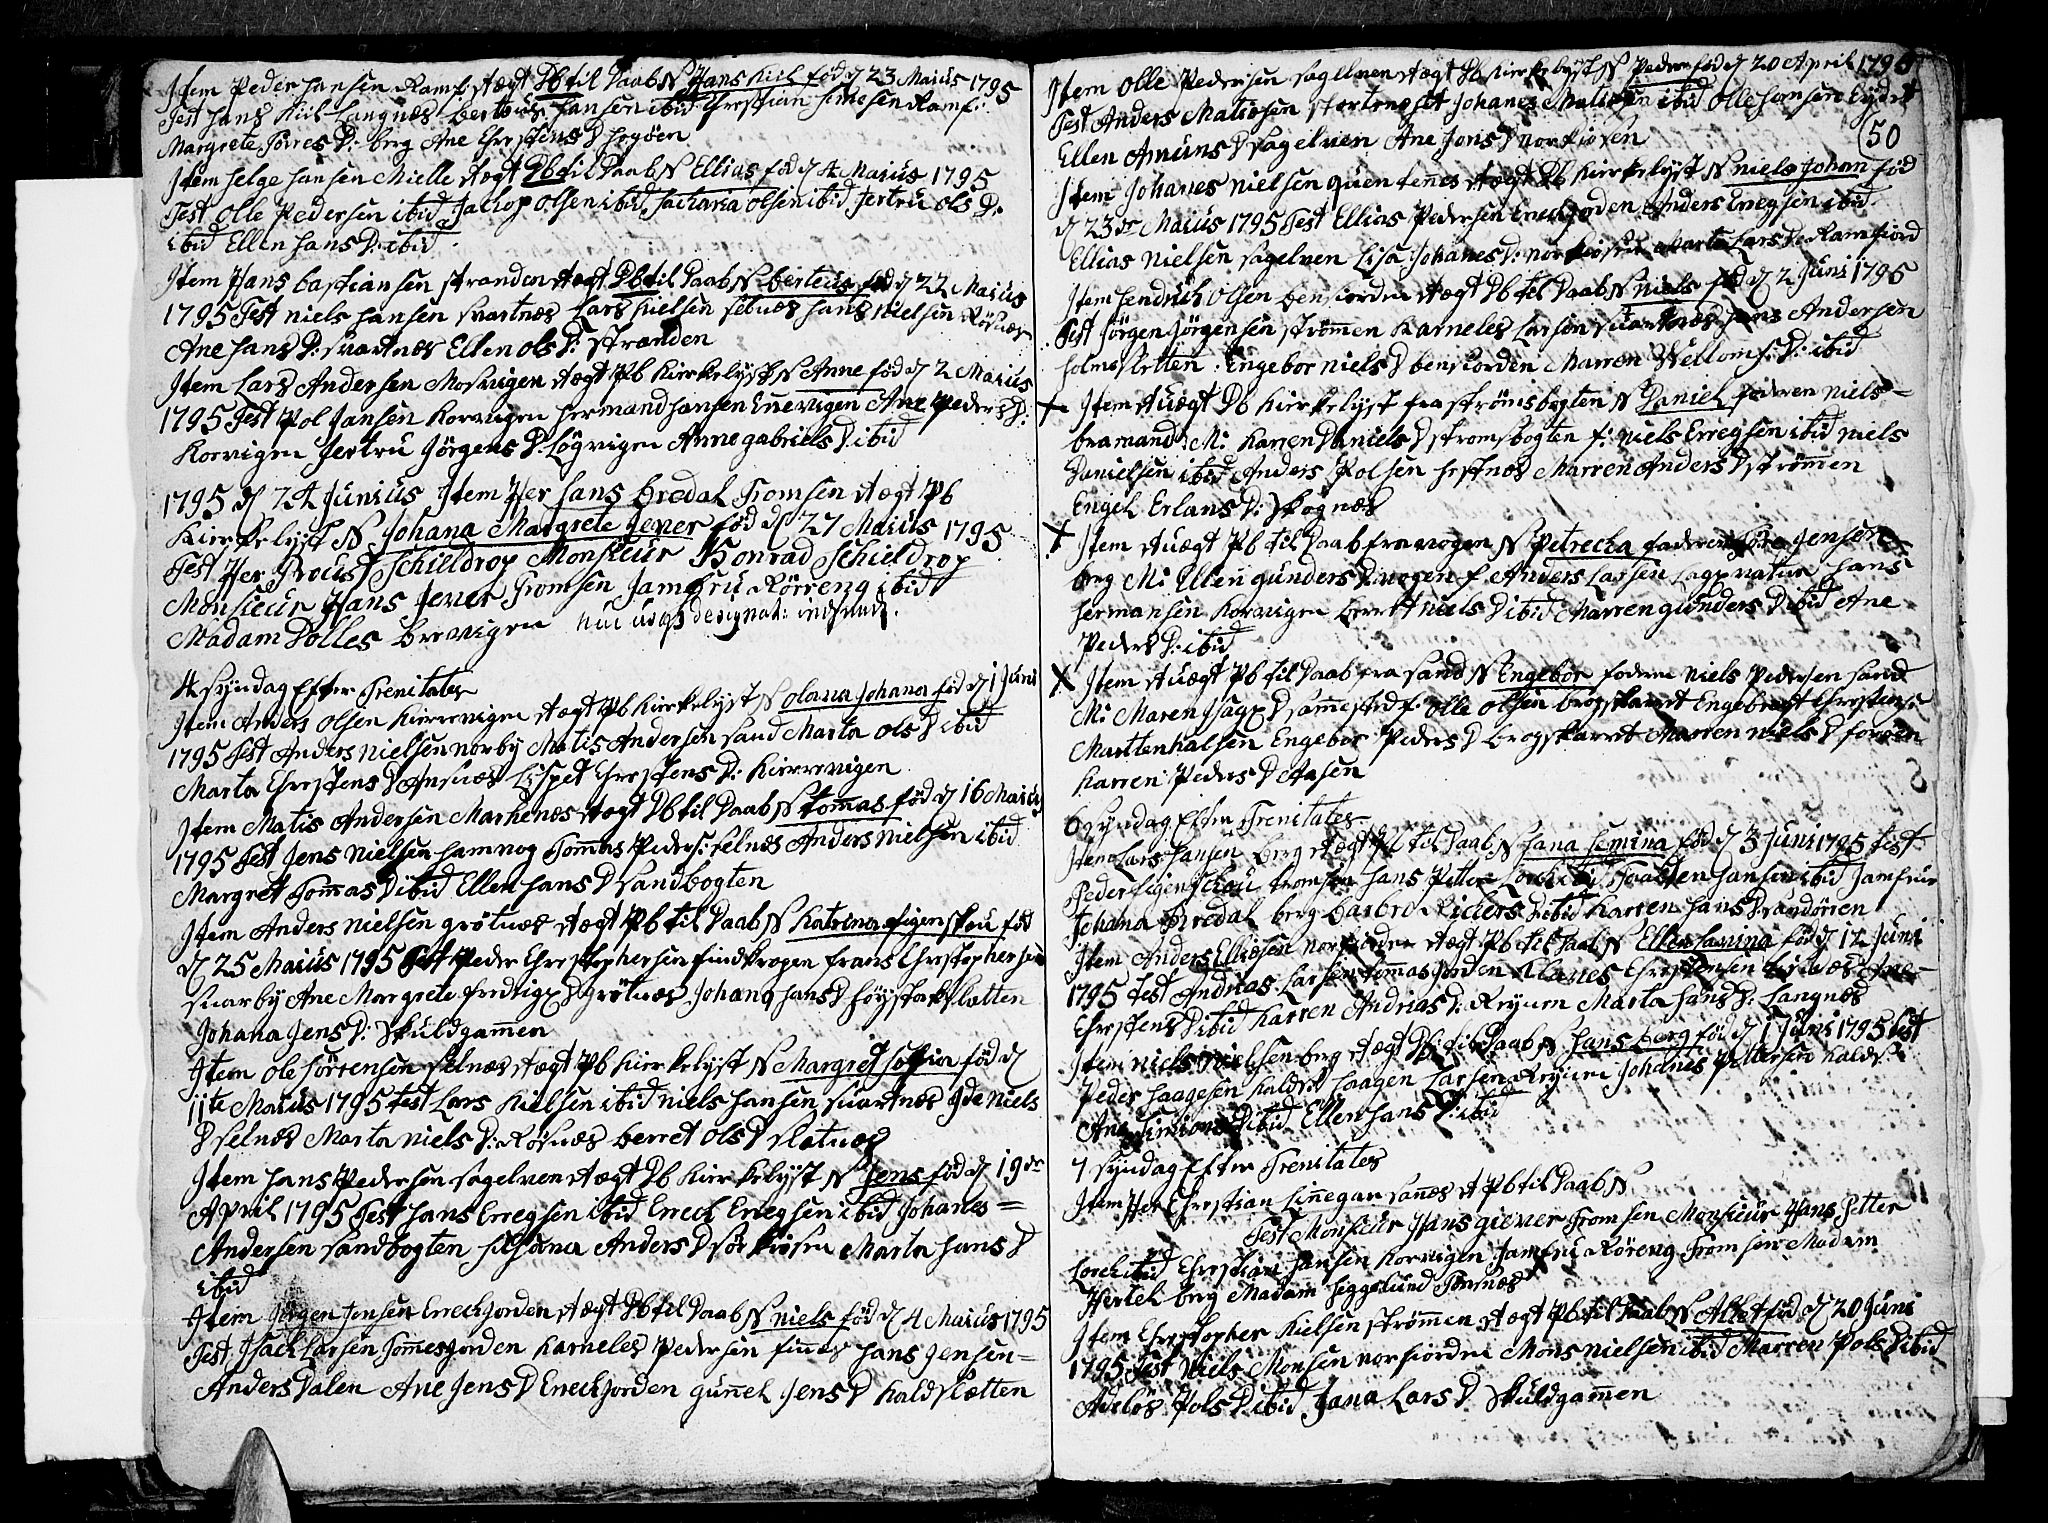 Item Peder Hansen Ramf: ægt Pb til Daab N Hans Kiil fød d 23 Maius 1795
Test Hans Kiil Langnæs berteus Hansen ibid Chrestian Simesen Ramf:
Margrete Torres D: berg Ane Chrestens D
Item Helge Hansen Mielle ægt Pb til Daab N Ellias fød d 4 Maius 1795
Test Olle Pedersen ibid Jachop Olsen ibid Sacharia Olsen ibid Jertru Ols D:
ibid Ellen Hans D: ibid
Item Hans bastiansen Stranden ægt Pb til Daab N berteus fød d 22 Maius
1795 Test Niels Hansen Svartnæs Lars Kielsen Selnæs Hans Nielsen Røsnæs
Ane Hans D: Svartnæs Ellen Ols D: Stranden
Item Lars Andersen Moskvigen ægt Pb Kierkelyst N Anne fød d 2 Maius
1795 Test Pol Jansen Korvigen Hermand Hansen Enevigen Ane Peders D:
Korvigen Jertru Jörgens D: Løgvigen Anne gabriels D ibid
1795 d 24 Junius Item Her Hans bredal Tromsen ægt Pb
Kierkelyst N Johana Margrete Jever fød d 27 Maius 1795
Test Her Procust Schieldrop Monsieur Konrad Schieldrop
Monsieur Hans Jever Tromsen Jamfru Rörreng ibid
Madam Dolles brevigen huc usqs designat: indsendt.
4 Syndag Efter Trenitates
Item Anders Olsen Kierrevigen ægt Pb Kierkelyst N Olana Johana fød d 1 Juni
1795 Test Anders Nielsen Norby Matis Andersen Sand Marta Ols D ibid
Marta Chrestens D Ansnæs Lispet Chrestens D: Kierrevigen
Item Matis Andersen Markenæs ægt Pb til Daab N Tomas fød d 16 Maius
1795 Test Jens Nielsen Hamnog Tomas Peders: Selnæs Anders Nielsen ibid
Margret Tomas D ibid Ellen Hans D Sandbogten
Item Anders Nielsen grötnæs ægt Pb til Daab N Katrina figenskou fød
d 25 Maius 1795 Test Peder Chrestophersen findkrogen frans Chrestophersen
Svarby Ane Margrete fredrigx D Grötnæs Johana Hans D Höystakslætten
Johana Jens D: Skuldgamen
Item Ole Sörrensen Selnæs ægt Pb Kierkelyst N Margret Soffia fød d
11te Maius 1795 Test Lars Kielsen ibid Niels Hansen Svartnæs Ide Niels
D Selnæs Marta Niels D: Røsnæs berret Ols D Slatnæs
Item Hans Pedersen Sagelven ægt Pb Kierkelyst N Jens fød d 19de
April 1795 Test Hans Erregsen ibid Erech Erregsen ibid Johanes
Andersen Sandbogten Susana Anders D Sörkiosen Marta Hans D
ibid
Item Jörgen Jonsen Erreckjorden ægt Pb til Daab N Niels fød d 4 Maius 1795
Test Isach Larsen Tomesjorden Karneles Pedersen finæs Hans Jensen
Anders Dalen Ane Jens D Erreckjorden gunnel Jens D Kaldslætten
Item Olle Pedersen Sagelven ægt Pb Kierkelyst N Peder fød d 20 April 1795
50
Test Anders Matisen Johanes Matisen ibid Olle Hansen
Ellen Amuns D Sagelven Ane Jons D Norkiosen
Item Johanes Nielsen ægt Pb Kierkelyst N Niels Johan fød
d 23de Maius 1795 Test Ellias Pedersen Erreckjorden Anders Erregsen ibid
Ellias Nielsen Sagelven Lisa Johanes D: Norkiosen Marta Lars D: Ramfiord
Item Hendrich Olsen bensiorden ægt Pb til Daab N Niels fød d 2 Juni 1795
Test Jörgen Jörgensen Strömen Karneles Larsen Svartnæs Hans Andersen
Holmesletten Engebor Niels D bensiorden Marren Welloms D: ibid
+ Item Uægt Pb Kierkelyst fra Strömsbogten N Daniel faderen Niels
bramand: M: Karren Daniels D Stromsbogten f: Niels Erregsen ibid Niels
Danielsen ibid Anders Polsen Hestnæs Marren Anders D Strömen
Engel Erlans D: Skognæs
+ Item Uægt Pb til Daab fra vogen N Petrecka faderen Tore Jensen
berg M: Ellen gunders D: vogen f Anders Larsen Hans
Hermansen Korvigen berret Niels D ibid Marren gunders D ibid Ane
Peders D: ibid
X Item Uægt Pb til Daab fra Sand N Engebor faderen Niels Pedersen Sand
M: Maren Isagx D sammested f: Olle Olsen brogskarret Engebreth Chrestens:
Marttenhalsen Engebor Peders D brogskarret Marren Niels D
Karren Peders D Aasen
6 Syndag Efter Trenitates
Item Lars Hansen berg ægt Pb til Daab N Hana Semina fød d 3 Juni 1795 Test
Peder figenskou Tromsen Hans Petter Lorck ibid Hansen ibid Jamfru
Johana Bredal berg barbro Rickers D ibid Karren Hans D
Item Anders Elliesen Norfiorden ægt Pb til Daab N Ellen fød d 12 Juni
1795 Test Andreas Larsen Tomasjorden Klaues Chrestensen Ane
Chrestens D ibid Karren Andrias D: Marta Hans D: Langnæs
Item Niels Nielsen berg ægt Pb: til Daab N Hans berg fød d 1 Juni 1795 Test
Peder Haagesen Kalds: Haagen Larsen Johanes Pettersen Kalds:
Ane Simions D ibid Ellen Hans D: ibid
7 Syndag Efter Trenitates
Item Her Chrestian Sanæs Pb til Daab N
Test Monsieur Hans giever Tromsen Monsieur Hans Petter
Lorck ibid Chrestian Hansen Korvigen Jamfru Röreng Tromsen Madam
Hertel berg Madam Heggelund
Item Chrestopher Kielsen Strömmen ægt Pb til Daab N fød d 20 Juni
1795 Test Niels Monsen Norfiorden Mons Nielsen ibid Marren Pols D ibid
Pols D ibid Jana Lars D Skuldgamen